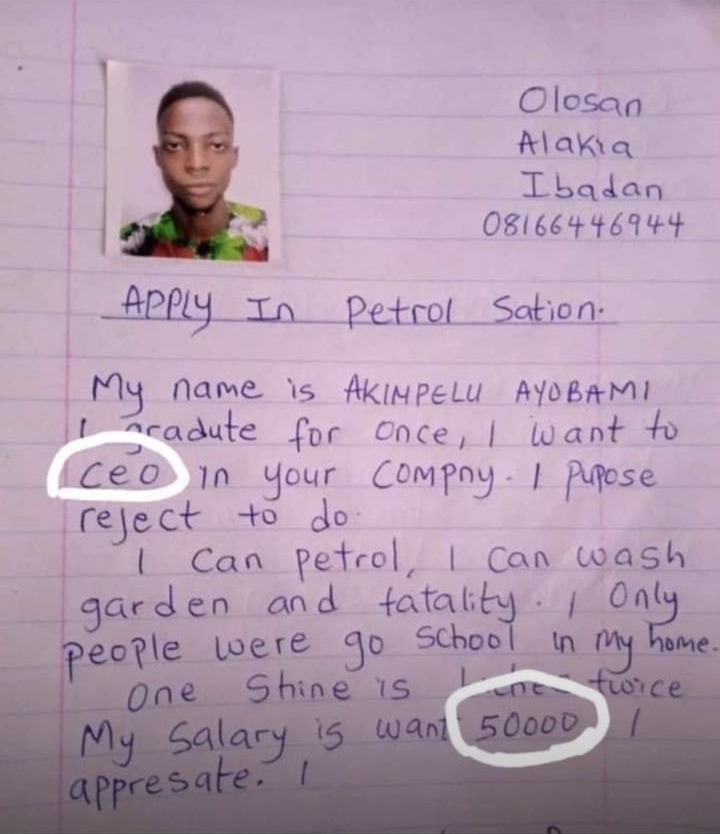 Olosan
Alakia
Ibadan
08166446944
APPLY In Petrol Sation.
My name is AKINPELU AYOBAMI
I gradute for once, I want to
ceo in your Compny. I Pupose
reject to do.
I Can petrol, I can wash
garden and fatality. I Only
people were go School in my home.
One Shine is twice
My Salary is want 50000 I
appresate. I